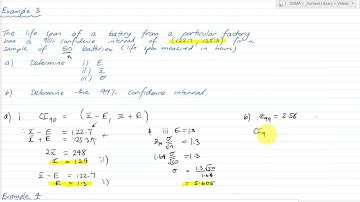 SYSMA > Content Library > Videos
Example 3
The life span of a battery from a particular factory
has a 90% confidence interval of (122.7, 125.3) for a
sample of 50 batteries (life span measured in hours)
n
a) Determine i) E
ii) x̄
iii) σ
b) Determine the 99% confidence interval.
a) i CI90 = (x̄ - E, x̄ + E)
∴ x̄ - E = 122.7
x̄ + E = 125.3
2x̄ = 248
x̄ = 124 ii)
x̄ - E = 122.7
E = 1.3 i)
iii E = 1.3
σ/√n = 1.3
1.64 σ/√50 = 1.3
σ = 1.3√50/1.64
= 5.605
b) z99 = 2.58
CI9
Example 4